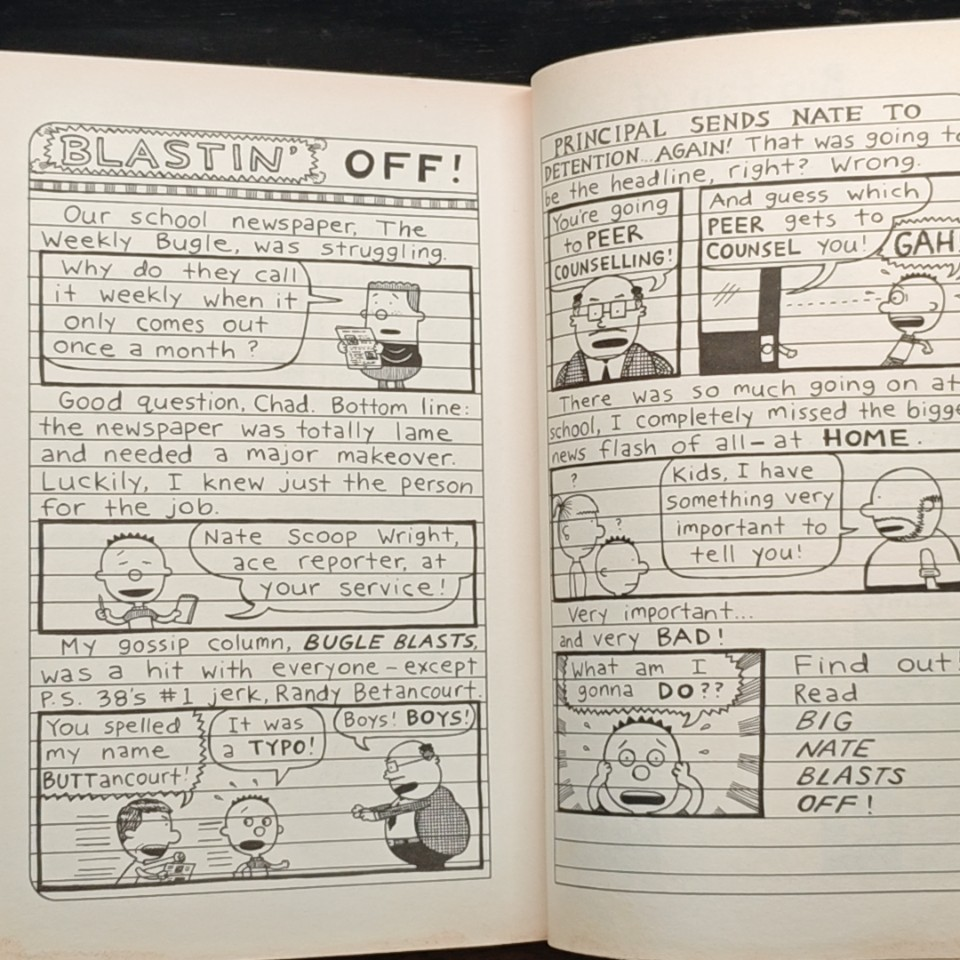 BLASTIN' OFF!
Our school newspaper, The
Weekly Bugle, was struggling.
Why do they call
it weekly when it
only comes out
once a month?
Good question, Chad. Bottom line:
the newspaper was totally lame
and needed a major makeover.
Luckily, I knew just the person
for the job.
Nate Scoop Wright,
ace reporter, at
your service!
My gossip column, BUGLE BLASTS,
was a hit with everyone - except
P.S. 38's #1 jerk, Randy Betancourt.
You spelled
my name
BUTTancourt!
It was
a TYPO!
Boys! BOYS!
PRINCIPAL SENDS NATE TO
DETENTION...AGAIN! That was going to
be the headline, right? Wrong.
You're going
to PEER
COUNSELLING!
And guess which
PEER gets to
COUNSEL you!
GAH!
There was so much going on at
school, I completely missed the bigge
news flash of all - at HOME.
?
?
Kids, I have
something very
important to
tell you!
Very important...
and very BAD!
What am I
gonna DO??
Find out!
Read
BIG
NATE
BLASTS
OFF!